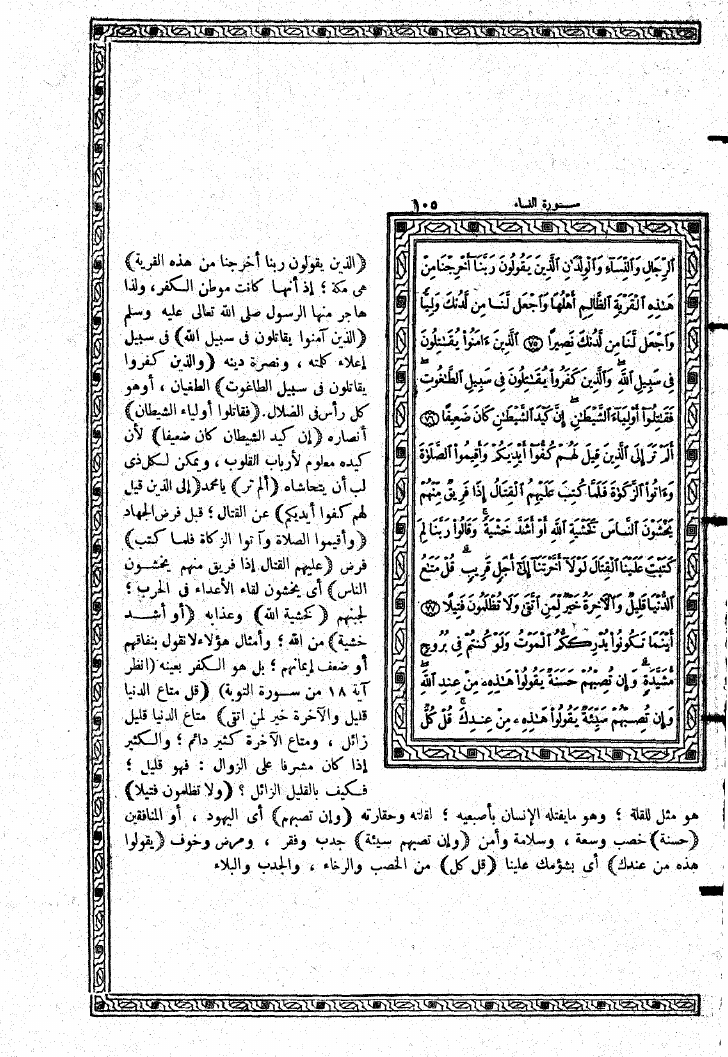 سورة النساء ١٠٥
ٱلرِّجَالِ وَٱلنِّسَآءِ وَٱلْوِلْدَٰنِ ٱلَّذِينَ يَقُولُونَ رَبَّنَآ أَخْرِجْنَا مِنْ
هَـٰذِهِ ٱلْقَرْيَةِ ٱلظَّالِمِ أَهْلُهَا وَٱجْعَل لَّنَا مِن لَّدُنكَ وَلِيًّا
وَٱجْعَل لَّنَا مِن لَّدُنكَ نَصِيرًا ٧٥ ٱلَّذِينَ ءَامَنُوا۟ يُقَـٰتِلُونَ
فِى سَبِيلِ ٱللَّهِ ۖ وَٱلَّذِينَ كَفَرُوا۟ يُقَـٰتِلُونَ فِى سَبِيلِ ٱلطَّـٰغُوتِ
فَقَـٰتِلُوٓا۟ أَوْلِيَآءَ ٱلشَّيْطَـٰنِ ۖ إِنَّ كَيْدَ ٱلشَّيْطَـٰنِ كَانَ ضَعِيفًا ٧٦
أَلَمْ تَرَ إِلَى ٱلَّذِينَ قِيلَ لَهُمْ كُفُّوٓا۟ أَيْدِيَكُمْ وَأَقِيمُوا۟ ٱلصَّلَوٰةَ
وَءَاتُوا۟ ٱلزَّكَوٰةَ فَلَمَّا كُتِبَ عَلَيْهِمُ ٱلْقِتَالُ إِذَا فَرِيقٌ مِّنْهُمْ
يَخْشَوْنَ ٱلنَّاسَ كَخَشْيَةِ ٱللَّهِ أَوْ أَشَدَّ خَشْيَةً ۚ وَقَالُوا۟ رَبَّنَا لِمَ
كَتَبْتَ عَلَيْنَا ٱلْقِتَالَ لَوْلَآ أَخَّرْتَنَآ إِلَىٰٓ أَجَلٍ قَرِيبٍ ۗ قُلْ مَتَـٰعُ
ٱلدُّنْيَا قَلِيلٌ وَٱلْـَٔاخِرَةُ خَيْرٌ لِّمَنِ ٱتَّقَىٰ وَلَا تُظْلَمُونَ فَتِيلًا ٧٧
أَيْنَمَا تَكُونُوا۟ يُدْرِككُّمُ ٱلْمَوْتُ وَلَوْ كُنتُمْ فِى بُرُوجٍ
مُّشَيَّدَةٍ ۗ وَإِن تُصِبْهُمْ حَسَنَةٌ يَقُولُوا۟ هَـٰذِهِۦ مِنْ عِندِ ٱللَّهِ ۖ
وَإِن تُصِبْهُمْ سَيِّئَةٌ يَقُولُوا۟ هَـٰذِهِۦ مِنْ عِندِكَ ۚ قُلْ كُلٌّ
(الذين يقولون ربنا أخرجنا من هذه القرية)
هى مكة ؛ إذ أنها كانت موطن الكفر، ولذا
هاجر منها الرسول صلى الله تعالى عليه وسلم
(الذين آمنوا يقاتلون فى سبيل الله) فى سبيل
إعلاء كلمته ، ونصرة دينه (والذين كفروا
يقاتلون فى سبيل الطاغوت) الطغيان ، أوهو
كل رأس فى الضلال. (فقاتلوا أولياء الشيطان)
أنصاره (إن كيد الشيطان كان ضعيفا) لأن
كيده معلوم لأرباب القلوب ، ويمكن لكل ذى
لب أن يتحاشاه (ألم تر) يامحمد (إلى الذين قيل
لهم كفوا أيديكم) عن القتال ؛ قبل فرض الجهاد
(وأقيموا الصلاة وآتوا الزكاة فلما كتب)
فرض (عليهم القتال إذا فريق منهم يخشون
الناس) أى يخشون لقاء الأعداء فى الحرب ؛
لجبنهم (كخشية الله) وعذابه (أو أشد
خشية) من الله ؛ وأمثال هؤلاء لانقول بنفاقهم
أو ضعف إيمانهم ؛ بل هو الكفر بعينه (انظر
آية ١٨ من سورة التوبة) (قل متاع الدنيا
قليل والآخرة خير لمن اتقى) متاع الدنيا قليل
زائل ، ومتاع الآخرة كثير دائم ؛ والكثير
إذا كان مشرفا على الزوال : فهو قليل ؛
فكيف بالقليل الزائل ؟ (ولا تظلمون فتيلا)
هو مثل للقلة ؛ وهو مايفتله الإنسان بأصبعيه ؛ لقلته وحقارته (وإن تصبهم) أى اليهود ، أو المنافقين
(حسنة) خصب وسعة ، وسلامة وأمن (وإن تصبهم سيئة) جدب وفقر ، ومرض وخوف (يقولوا
هذه من عندك) أى بشؤمك علينا (قل كل) من الخصب والرخاء ، والجدب والبلاء